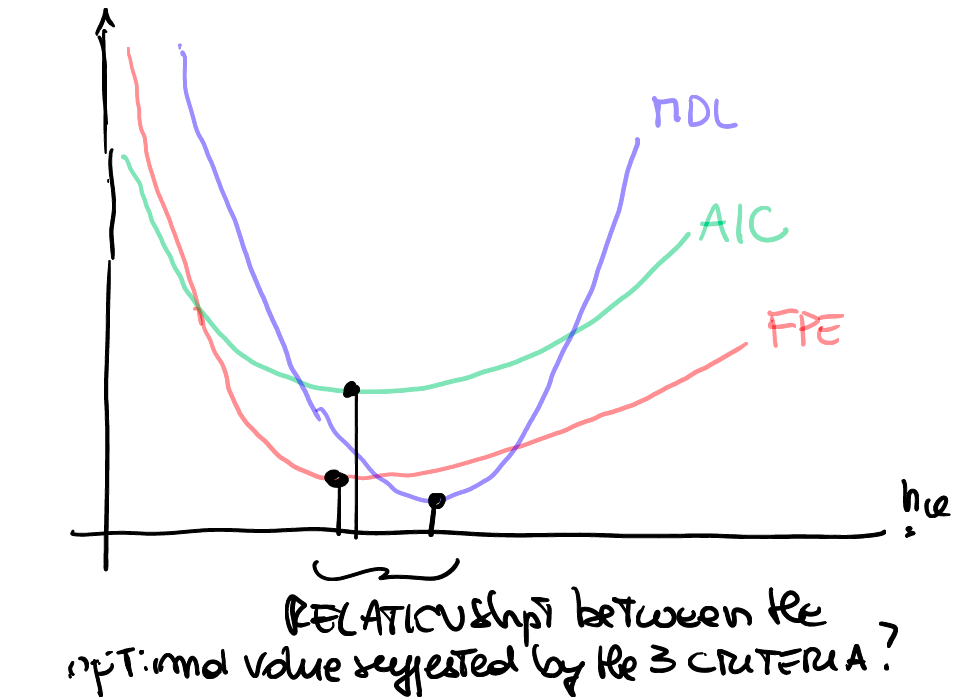 MDL
AIC
FPE
RELATIONShip between the
optimal value suggested by the 3 CRITERIA?